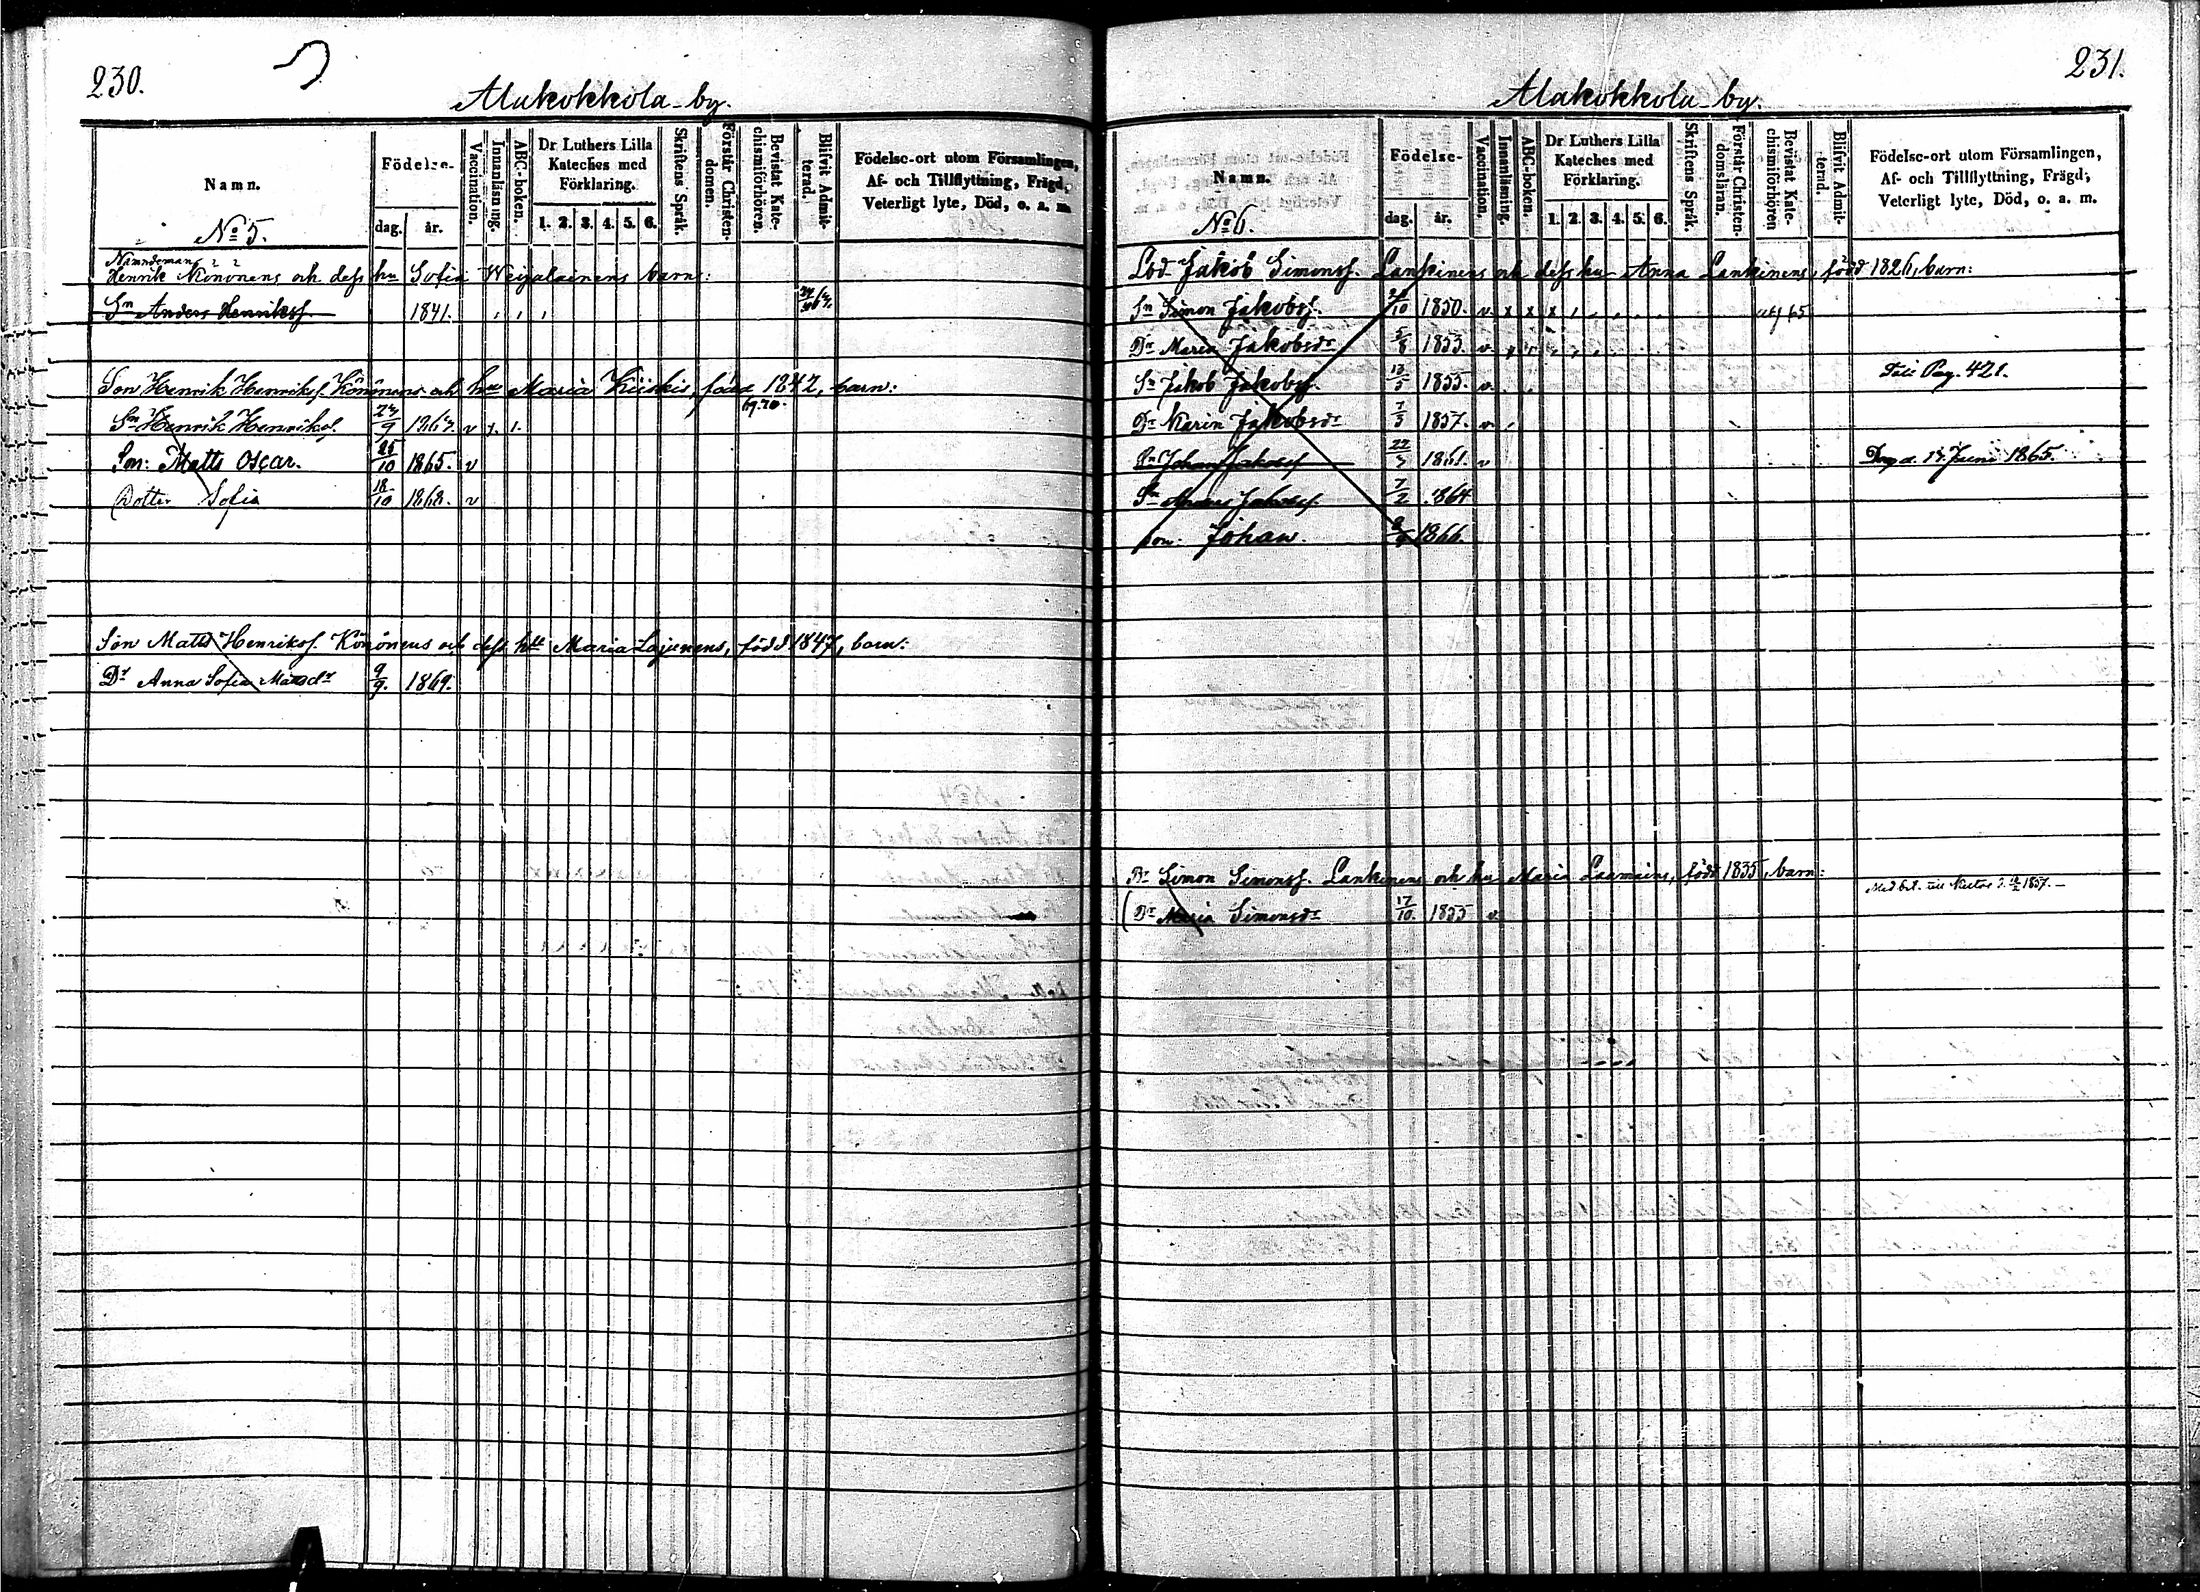 230.
Alakokkola by.
Namn.
Födelse-
dag. år.
Vaccination.
Innanläsning.
ABC-boken.
Dr Luthers Lilla Kateches med Förklaring.
1. 2. 3. 4. 5. 6.
Skriftens Språk.
Förstår Christendomen.
Bevistat Katechismiförhören.
Blifvit Admitterad.
Födelse-ort utom Församlingen,
Af- och Tillflyttning, Frägd,
Veterligt lyte, Död, o. a. m.
No 5.
Nämndeman
Henrik Könönens och dess hu Sofia barn:
Sn Anders Henrikss. 1841.
Son Henrik Henrikss. Könönens och hu Maria Kiiskis, född 1842, barn:
69.70.
Sn Henrik Henrikss. 27/9 1863. v
Son: Matts Oscar. 25/10 1865. v
Dotter Sofia 18/10 1868. v
Son Matts Henrikss. Könönens och dess hu Maria född 1847, barn:
Dr Anna Sofia Matsdr 9/9. 1869.
231.
Alakokkola by.
Namn.
Födelse-
dag. år.
Vaccination.
Innanläsning.
ABC-boken.
Dr Luthers Lilla Kateches med Förklaring.
1. 2. 3. 4. 5. 6.
Skriftens Språk.
Förstår Christendomsläran.
Bevistat Katechismiförhören
Blifvit Admitterad.
Födelse-ort utom Församlingen,
Af- och Tillflyttning, Frägd,
Veterligt lyte, Död, o. a. m.
No 6.
Lod. Jakob Simonss. Lankinens och dess hu Anna Lankinens, född 1826, barn:
Sn Simon Jakobss. /10 1850. v x x x 65
Dr Maria Jakobsdr 5/8 1853. v
Sn Jakob Jakobss. 13/5 1855. v
Till Pag. 421.
Dr Karin Jakobsdr 7/3 1857. v
Sn Johan Jakobss 22/3 1861. v
Död d. Juni 1865.
Sn Anders Jakobss. 7/2 1864
Son: Johan. 1866.
Br Simon Simonss. Lankinens och hu Maria född 1835, barn:
Med bet. till 1857.
Dr Maria Simonsdr 17/10. 1855 v